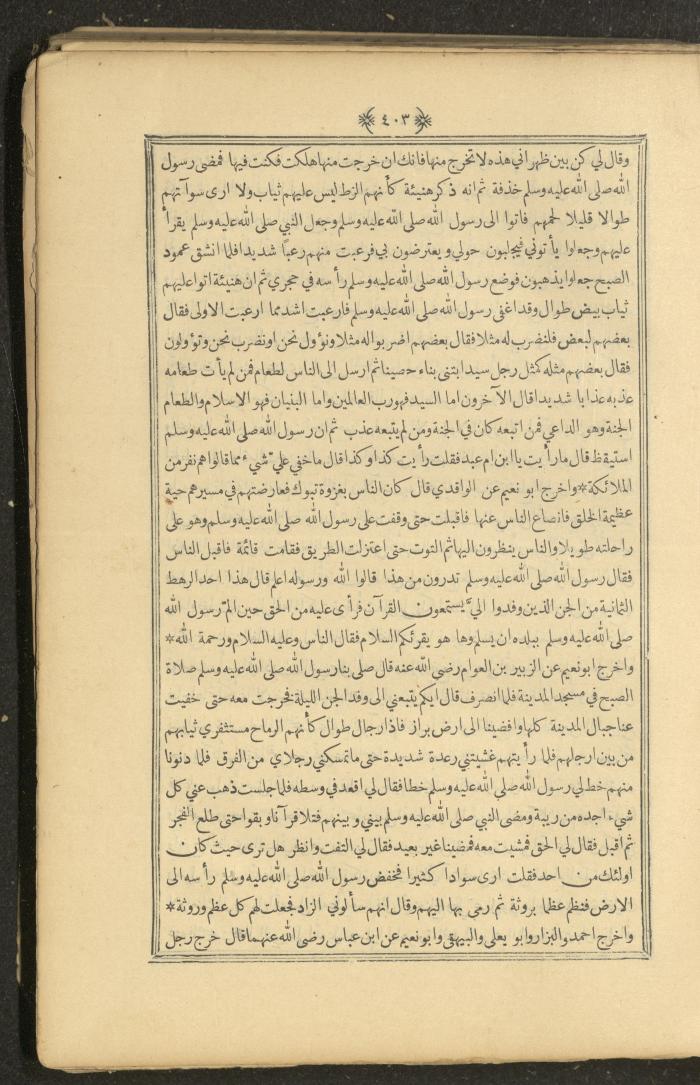 ﴿٤٠٣﴾
وقال لي كن بين ظهراني هذه لا تخرج منها فانك ان خرجت منها هلكت فكنت فيها فمضى رسول
الله صلى الله عليه وسلم خذفة ثم انه ذكر هنيئة كأنهم الزط ليس عليهم ثياب ولا ارى سوآتهم
طوالا قليلا لحمهم فاتوا الى رسول الله صلى الله عليه وسلم وجعل النبي صلى الله عليه وسلم يقرأ
عليهم وجعلوا يأتوني فيجلبون حولي ويعترضون بي فرعبت منهم رعبًا شديدا فلما انشق عمود
الصبح جعلوا يذهبون فوضع رسول الله صلى الله عليه وسلم رأسه في حجري ثم ان هنيئة اتوا عليهم
ثياب بيض طوال وقد اغفى رسول الله صلى الله عليه وسلم فارعبت اشد مما ارعبت الاولى فقال
بعضهم لبعض فلنضرب له مثلا فقال بعضهم اضربوا له مثلا ونؤول نحن او نضرب نحن وتؤولون
فقال بعضهم مثله كمثل رجل سيد ابتنى بناء حصينا ثم ارسل الى الناس لطعام فمن لم يأت طعامه
عذبه عذابا شديدا قال الآخرون اما السيد فهو رب العالمين واما البنيان فهو الاسلام والطعام
الجنة وهو الداعي فمن اتبعه كان في الجنة ومن لم يتبعه عذب ثم ان رسول الله صلى الله عليه وسلم
استيقظ قال ما رأيت يا ابن ام عبد فقلت رأيت كذا وكذا قال ما خفي علي شيء مما قالوا هم نفر من
الملائكة * واخرج ابو نعيم عن الواقدي قال كان الناس بغزوة تبوك فعارضتهم في مسيرهم حية
عظيمة الخلق فانصاع الناس عنها فاقبلت حتى وقفت على رسول الله صلى الله عليه وسلم وهو على
راحلته طويلا والناس ينظرون اليها ثم التوت حتى اعتزلت الطريق فقامت قائمة فاقبل الناس
فقال رسول الله صلى الله عليه وسلم تدرون من هذا قالوا الله ورسوله اعلم قال هذا احد الرهط
الثمانية من الجن الذين وفدوا الي يستمعون القرآن فرأى عليه من الحق حين الم رسول الله
صلى الله عليه وسلم ببلده ان يسلم وها هو يقرئكم السلام فقال الناس وعليه السلام ورحمة الله *
واخرج ابو نعيم عن الزبير بن العوام رضى الله عنه قال صلى بنا رسول الله صلى الله عليه وسلم صلاة
الصبح في مسجد المدينة فلما انصرف قال ايكم يتبعني الى وفد الجن الليلة فخرجت معه حتى خفيت
عنا جبال المدينة كلها وافضينا الى ارض براز فاذا رجال طوال كأنهم الرماح مستثفري ثيابهم
من بين ارجلهم فلما رأيتهم غشيتني رعدة شديدة حتى ما تمسكني رجلاي من الفرق فلما دنونا
منهم خط لي رسول الله صلى الله عليه وسلم خطا فقال لي اقعد في وسطه فلما جلست ذهب عني كل
شيء اجده من ريبة ومضى النبي صلى الله عليه وسلم بيني وبينهم فتلا قرآنا وبقوا حتى طلع الفجر
ثم اقبل فقال لي الحق فمشيت معه فمضينا غير بعيد فقال لي التفت وانظر هل ترى حيث كان
اولئك من احد فقلت ارى سوادا كثيرا فخفض رسول الله صلى الله عليه وسلم رأسه الى
الارض فنظم عظما بروثة ثم رمى بها اليهم وقال انهم سألوني الزاد فجعلت لهم كل عظم وروثة *
واخرج احمد والبزار وابو يعلى والبيهقي وابو نعيم عن ابن عباس رضى الله عنهما قال خرج رجل